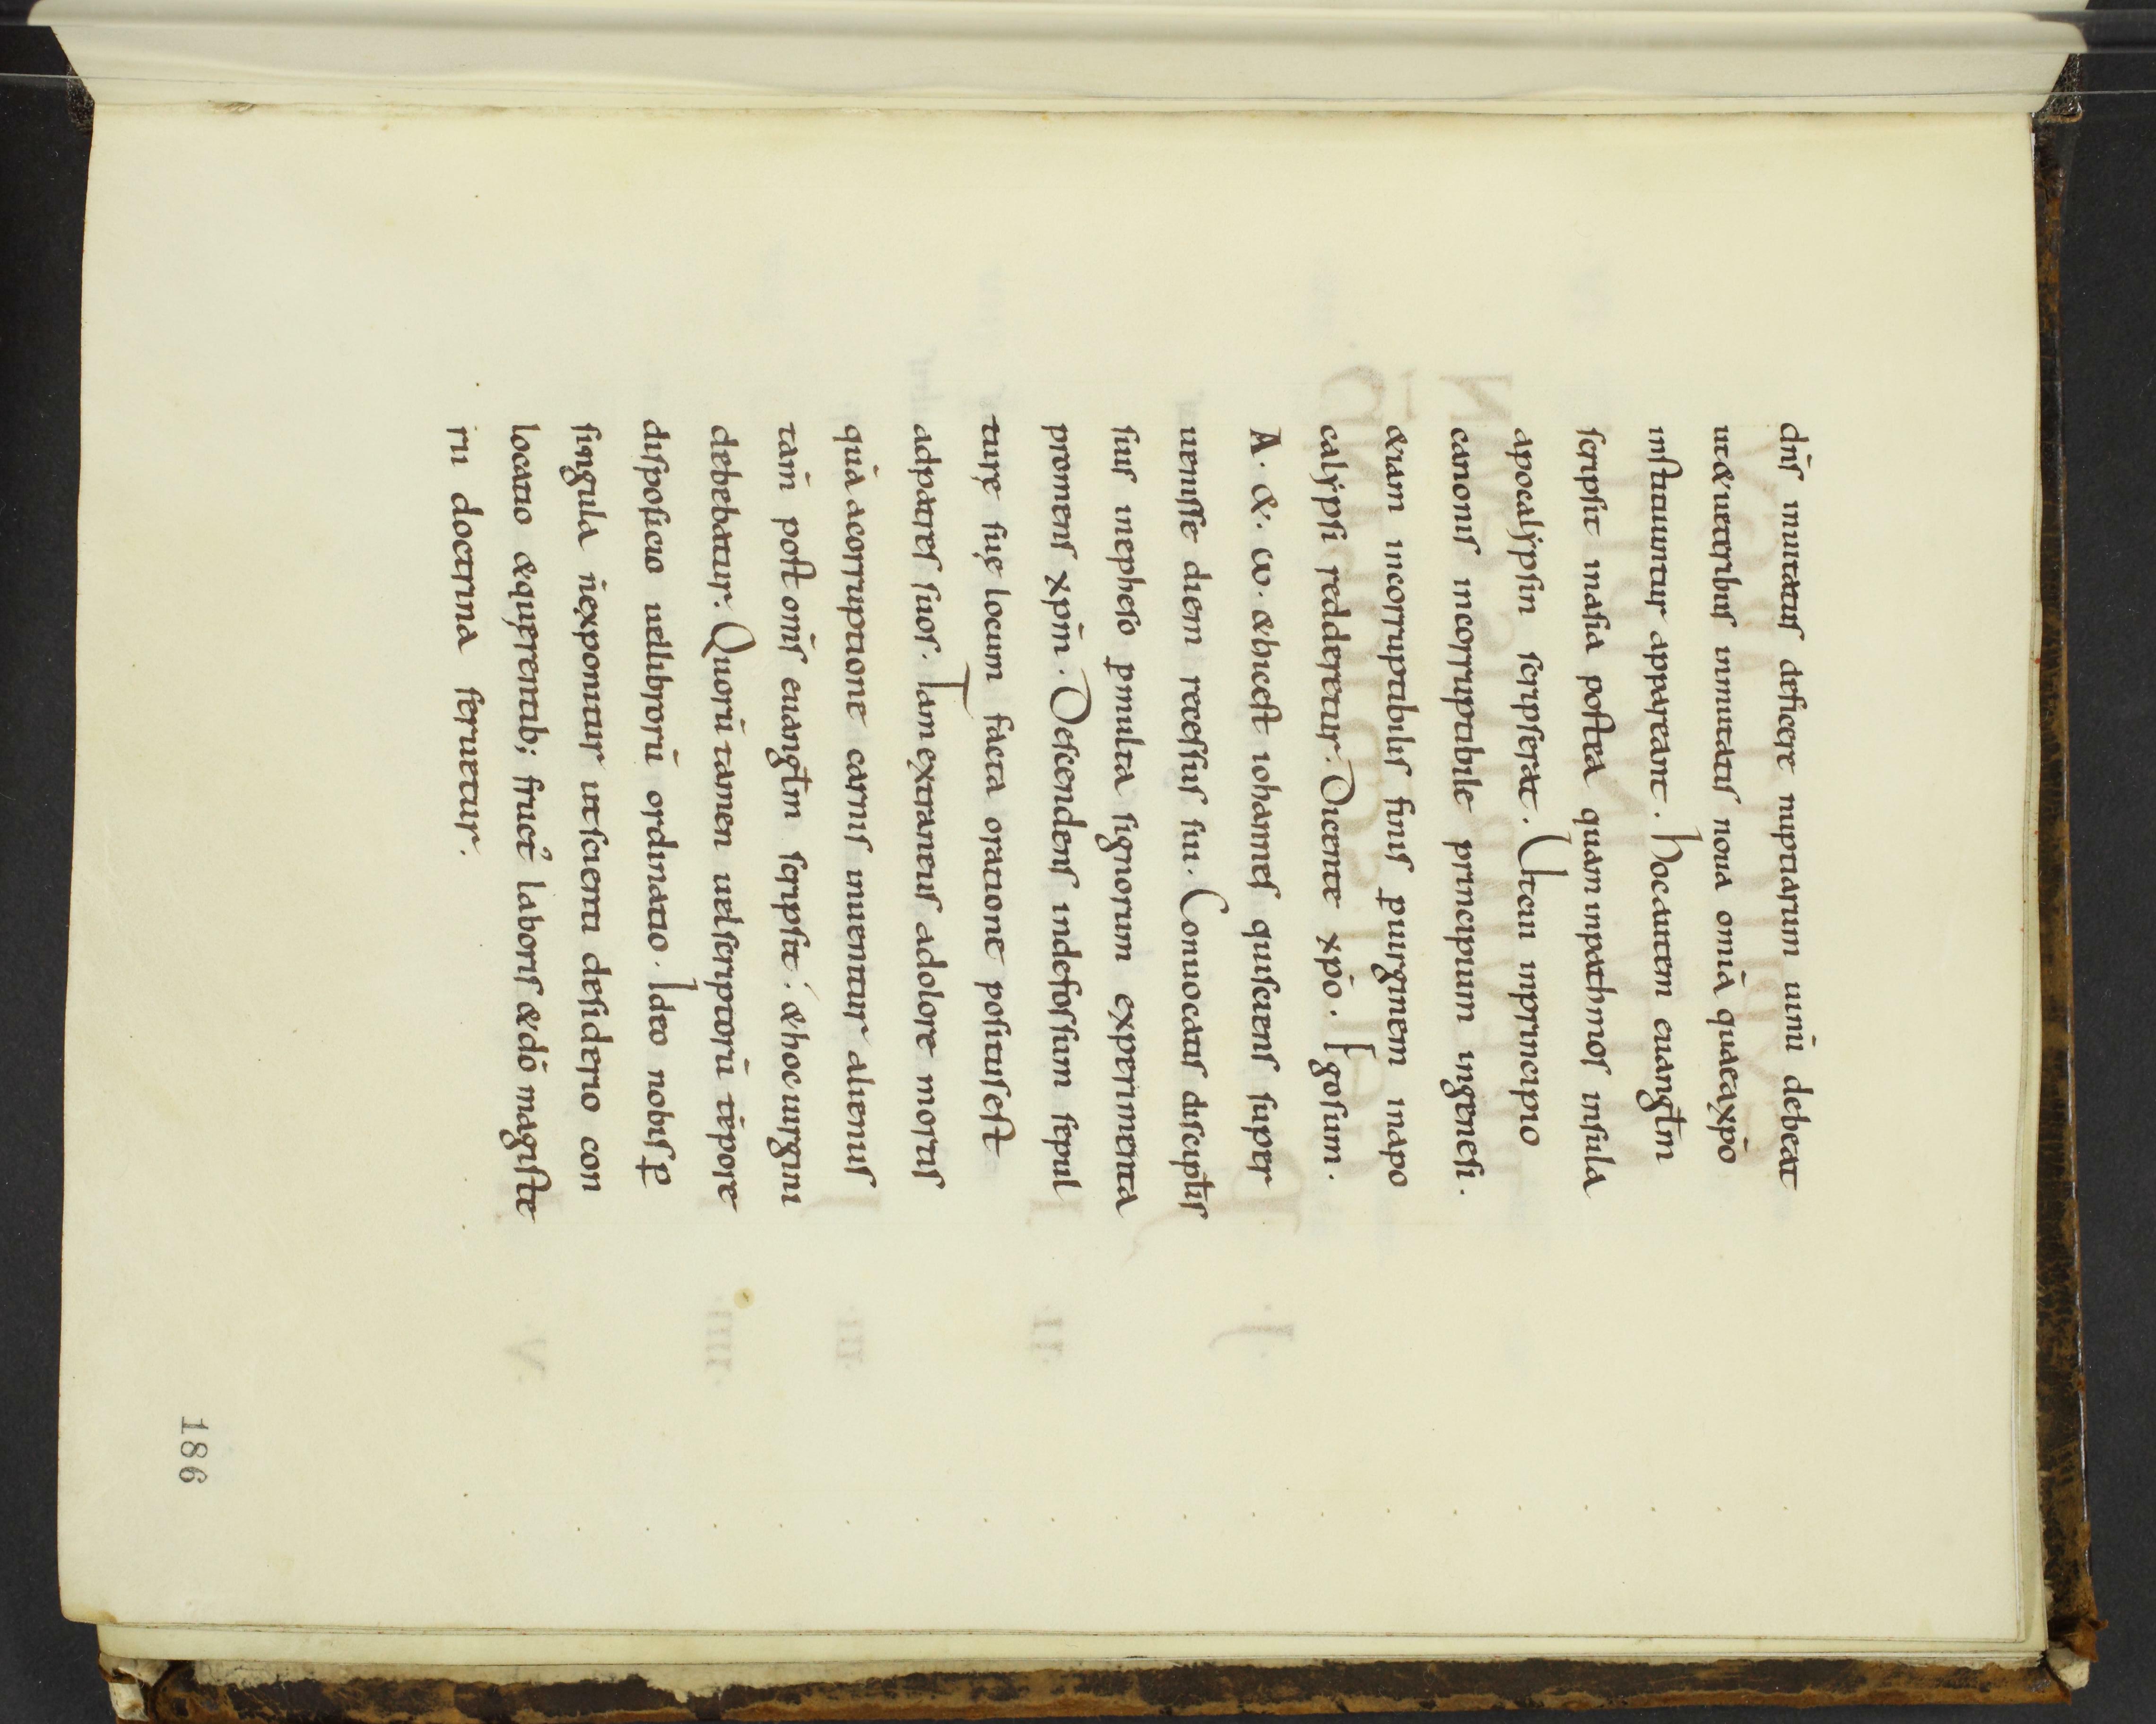 dn̄s inuitatus deficere nuptiarum uinū debeat
ut&ueteribus inmutatis noua om̄ia quaeaxp̄o
instituuntur appareant. Hocautem euangl̄m
scripsit inasia postea quam inpathmos insula
apocalẏpsin scripserat. Utcui inprincipio
canonis incorruptibile principium ingenesi.
&iam incorruptibilis finis ꝑuirginem inapo
calẏpsi redderetur. Dicente xp̄o. Egosum.
A. &. ω. &hicest iohannes quisciens super
uenisse diem recessus sui. Conuocatis discipul̄is
suis inepheso ꝑmulta signorum experimenta
promens xp̄m. Descendens indefossum sepul
turę suę locum facta oratione positusest
adpatres suos. Tam extraneus adolore mortis
quā acorruptione carnis inuenitur alienus
tam̄ post om̄s euangl̄m scripsit. &hocuirgini
debebatur. Quorū tamen uelscriptorū tēpore
dispositio uellibrorū ordinatio. Ideo nobis ꝑ
singula n̄exponitur utscienti desiderio con
locatio &quęrentib; fruct' laboris &dō magiste
rii doctrina seruetur.
186